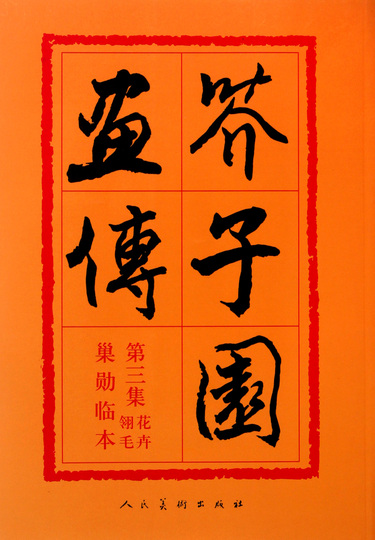 芥子園
畫傳
第三集
花卉
翎毛
巢勋临本
人民美術出版社